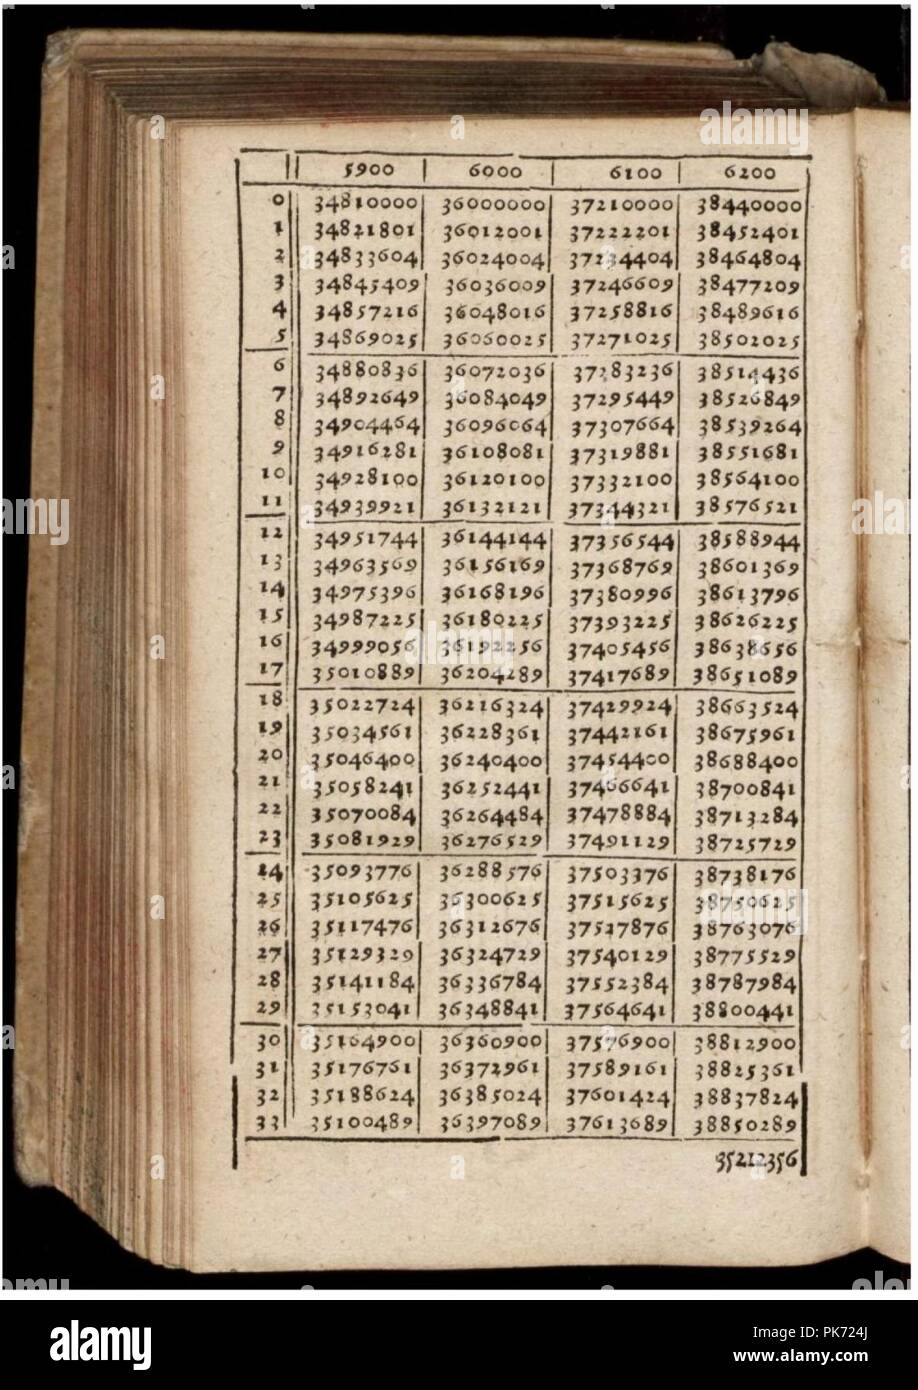 5900 | 6000 | 6100 | 6200
0 34810000 36000000 37210000 38440000
1 34821801 36012001 37222201 38452401
2 34833604 36024004 37234404 38464804
3 34845409 36036009 37246609 38477209
4 34857216 36048016 37258816 38489616
5 34869025 36060025 37271025 38502025
6 34880836 36072036 37283236 38514436
7 34892649 36084049 37295449 38526849
8 34904464 36096064 37307664 38539264
9 34916281 36108081 37319881 38551681
10 34928100 36120100 37332100 38564100
11 34939921 36132121 37344321 38576521
12 34951744 36144144 37356544 38588944
13 34963569 36156169 37368769 38601369
14 34975396 36168196 37380996 38613796
15 34987225 36180225 37393225 38626225
16 34999056 36192256 37405456 38638656
17 35010889 36204289 37417689 38651089
18 35022724 36216324 37429924 38663524
19 35034561 36228361 37442161 38675961
20 35046400 36240400 37454400 38688400
21 35058241 36252441 37466641 38700841
22 35070084 36264484 37478884 38713284
23 35081929 36276529 37491129 38725729
24 35093776 36288576 37503376 38738176
25 35105625 36300625 37515625 38750625
26 35117476 36312676 37527876 38763076
27 35129329 36324729 37540129 38775529
28 35141184 36336784 37552384 38787984
29 35153041 36348841 37564641 38800441
30 35164900 36360900 37576900 38812900
31 35176761 36372961 37589161 38825361
32 35188624 36385024 37601424 38837824
33 35100489 36397089 37613689 38850289
35212356
alamy
Image ID: PK724J
www.alamy.com